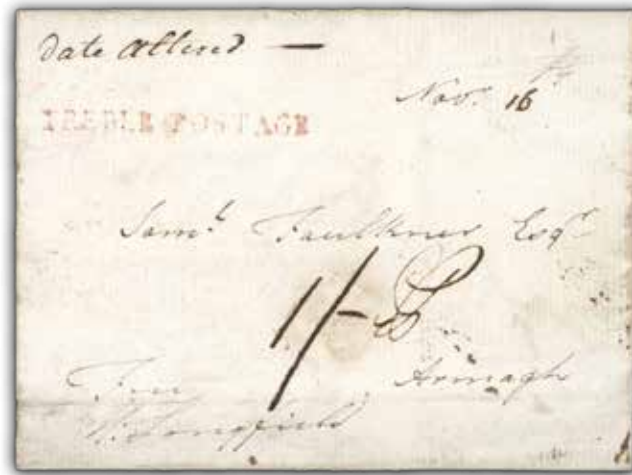 Date Altered —
Nov.r 16
TREBLE POSTAGE
Sam.l Faulkner Esq.r
1/-
Armagh
Free
Longfield